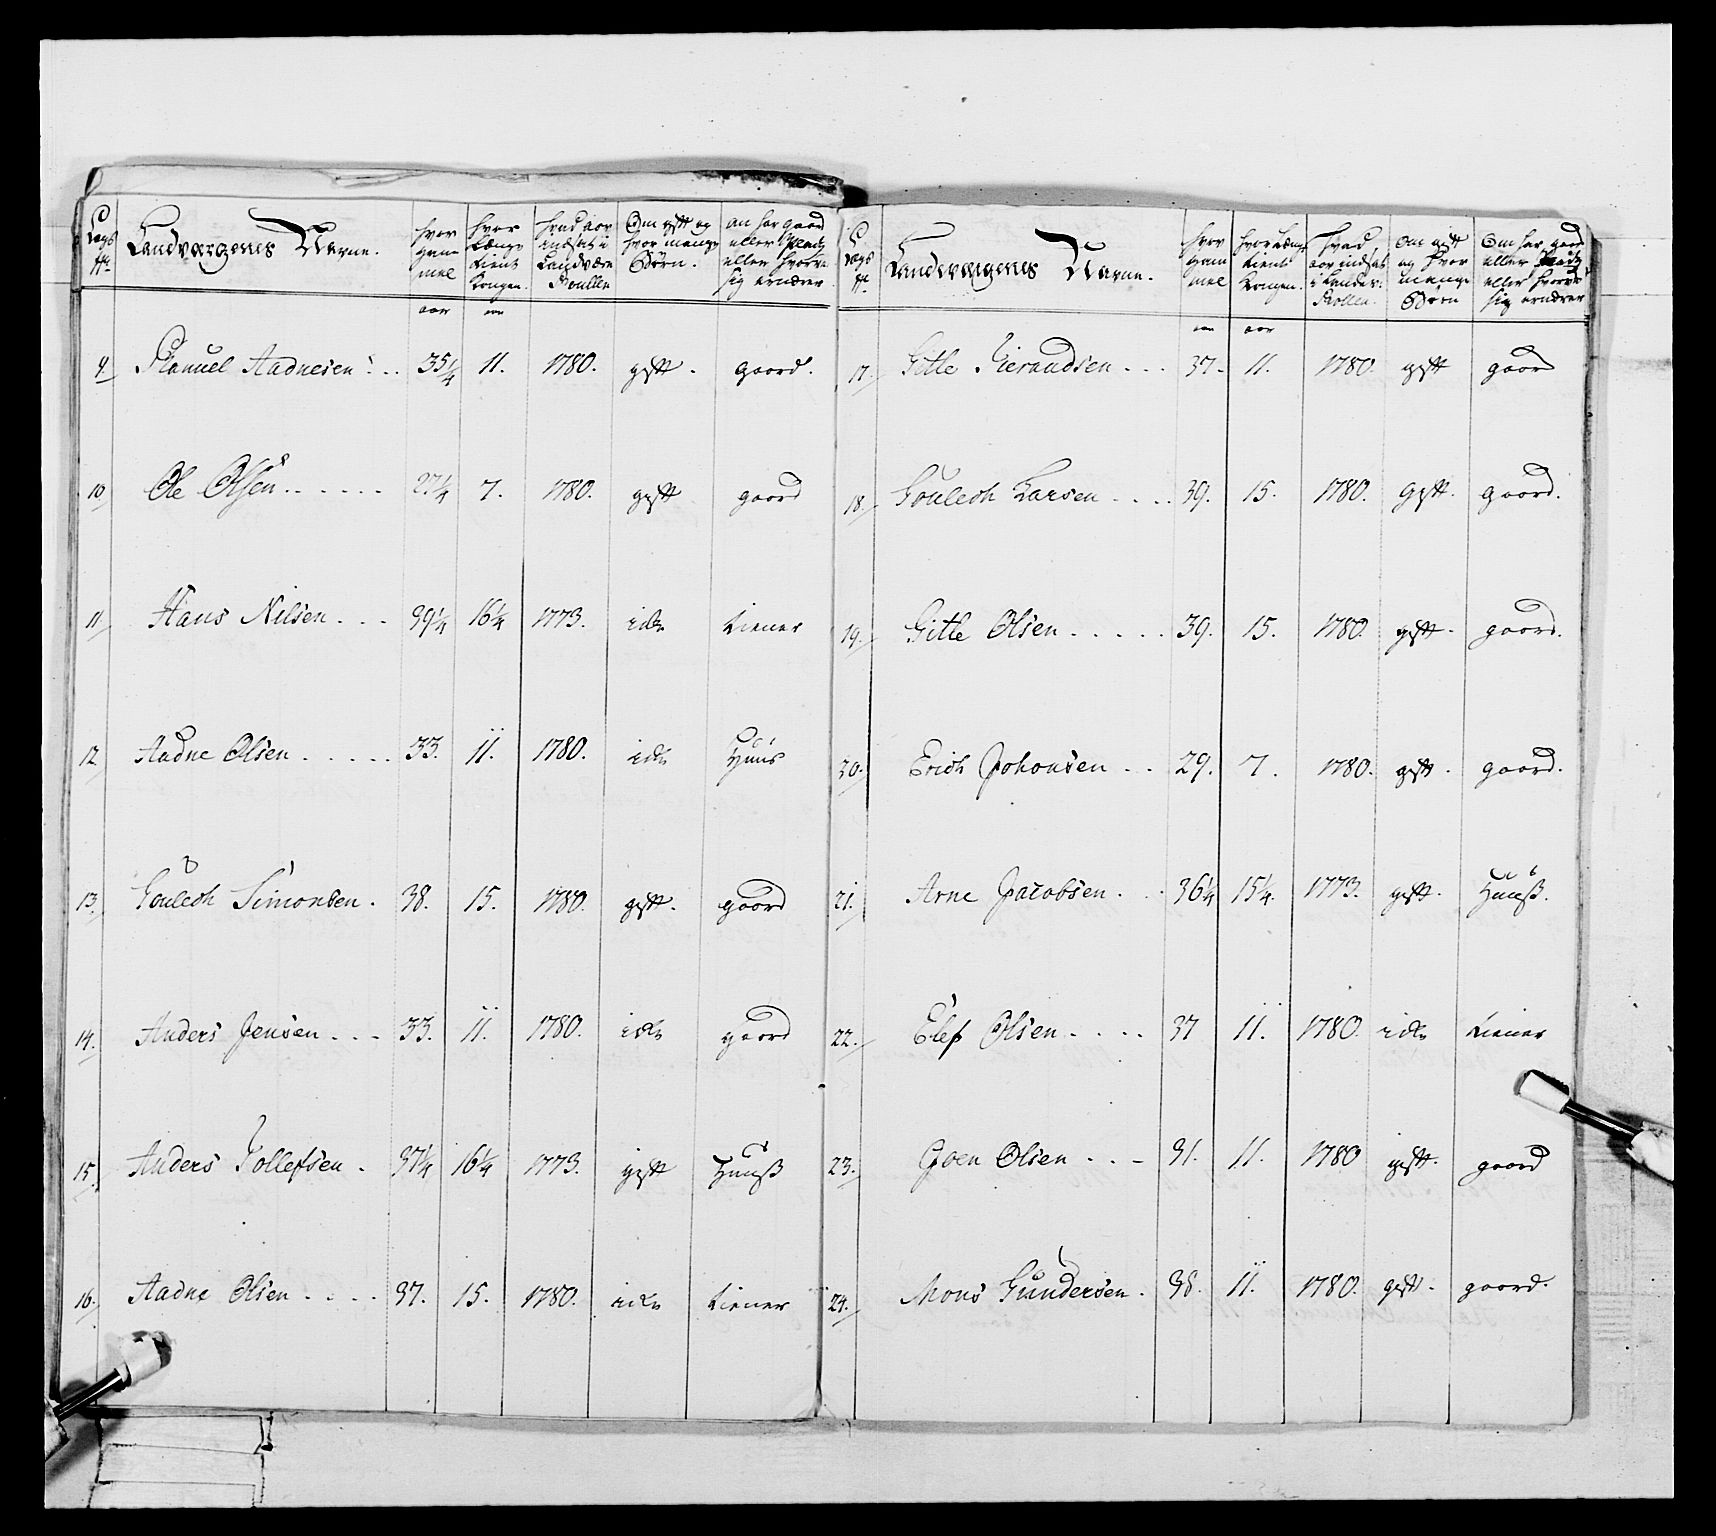 Landværgenes Navne.
hvor gammel
hvor Længe tient Kongen.
hvad aar indsat i Landværn Roullen
Om gift og hvor mange Børn.
om har gaard eller Plads eller hvorved sig ernærer.
aar
9 Samuel Aadnesen 35¼ 11. 1780. gift. gaard.
10 Ole Olsen 27¼ 7. 1780. gift gaard
11 Hans Nilsen 39¼ 16¼ 1773. icke tiener
12 Aadne Olsen 33. 11. 1780. icke Huus
13. Gouleth Simonsen. 38. 15. 1780. gift. gaard
14. Anders Jensen 33. 11. 1780. icke gaard
15. Anders Tollefsen. 37¼ 16¼ 1773. gift Huuß
16. Aadne Olsen 37. 15. 1780. icke tiener
Landværgenes Navne.
hvor gammel
hvor Længe tient Kongen.
hvad aar indsat i Landv: Rollen.
om gift og hvor mange Børn
Om har gaard eller Plads eller hvorved sig ernærer
aar
17. Gitle 37. 11. 1780. gift gaard
18. Gouleth Larsen 39. 15. 1780. gift. gaard.
19. Gitle Olsen 39. 15. 1780. gift. gaard.
30. Erich Johansen 29. 7. 1780. gift. gaard.
21. Arne Jacobsen. 36¼ 15¼. 1773. gift. Huuß.
22. Elef Olsen 37 11. 1780. icke tiener
23. Joen Olsen 31. 11. 1780 gift. gaard
24. Mons Gundersen. 38. 11. 1780. gift. gaard.